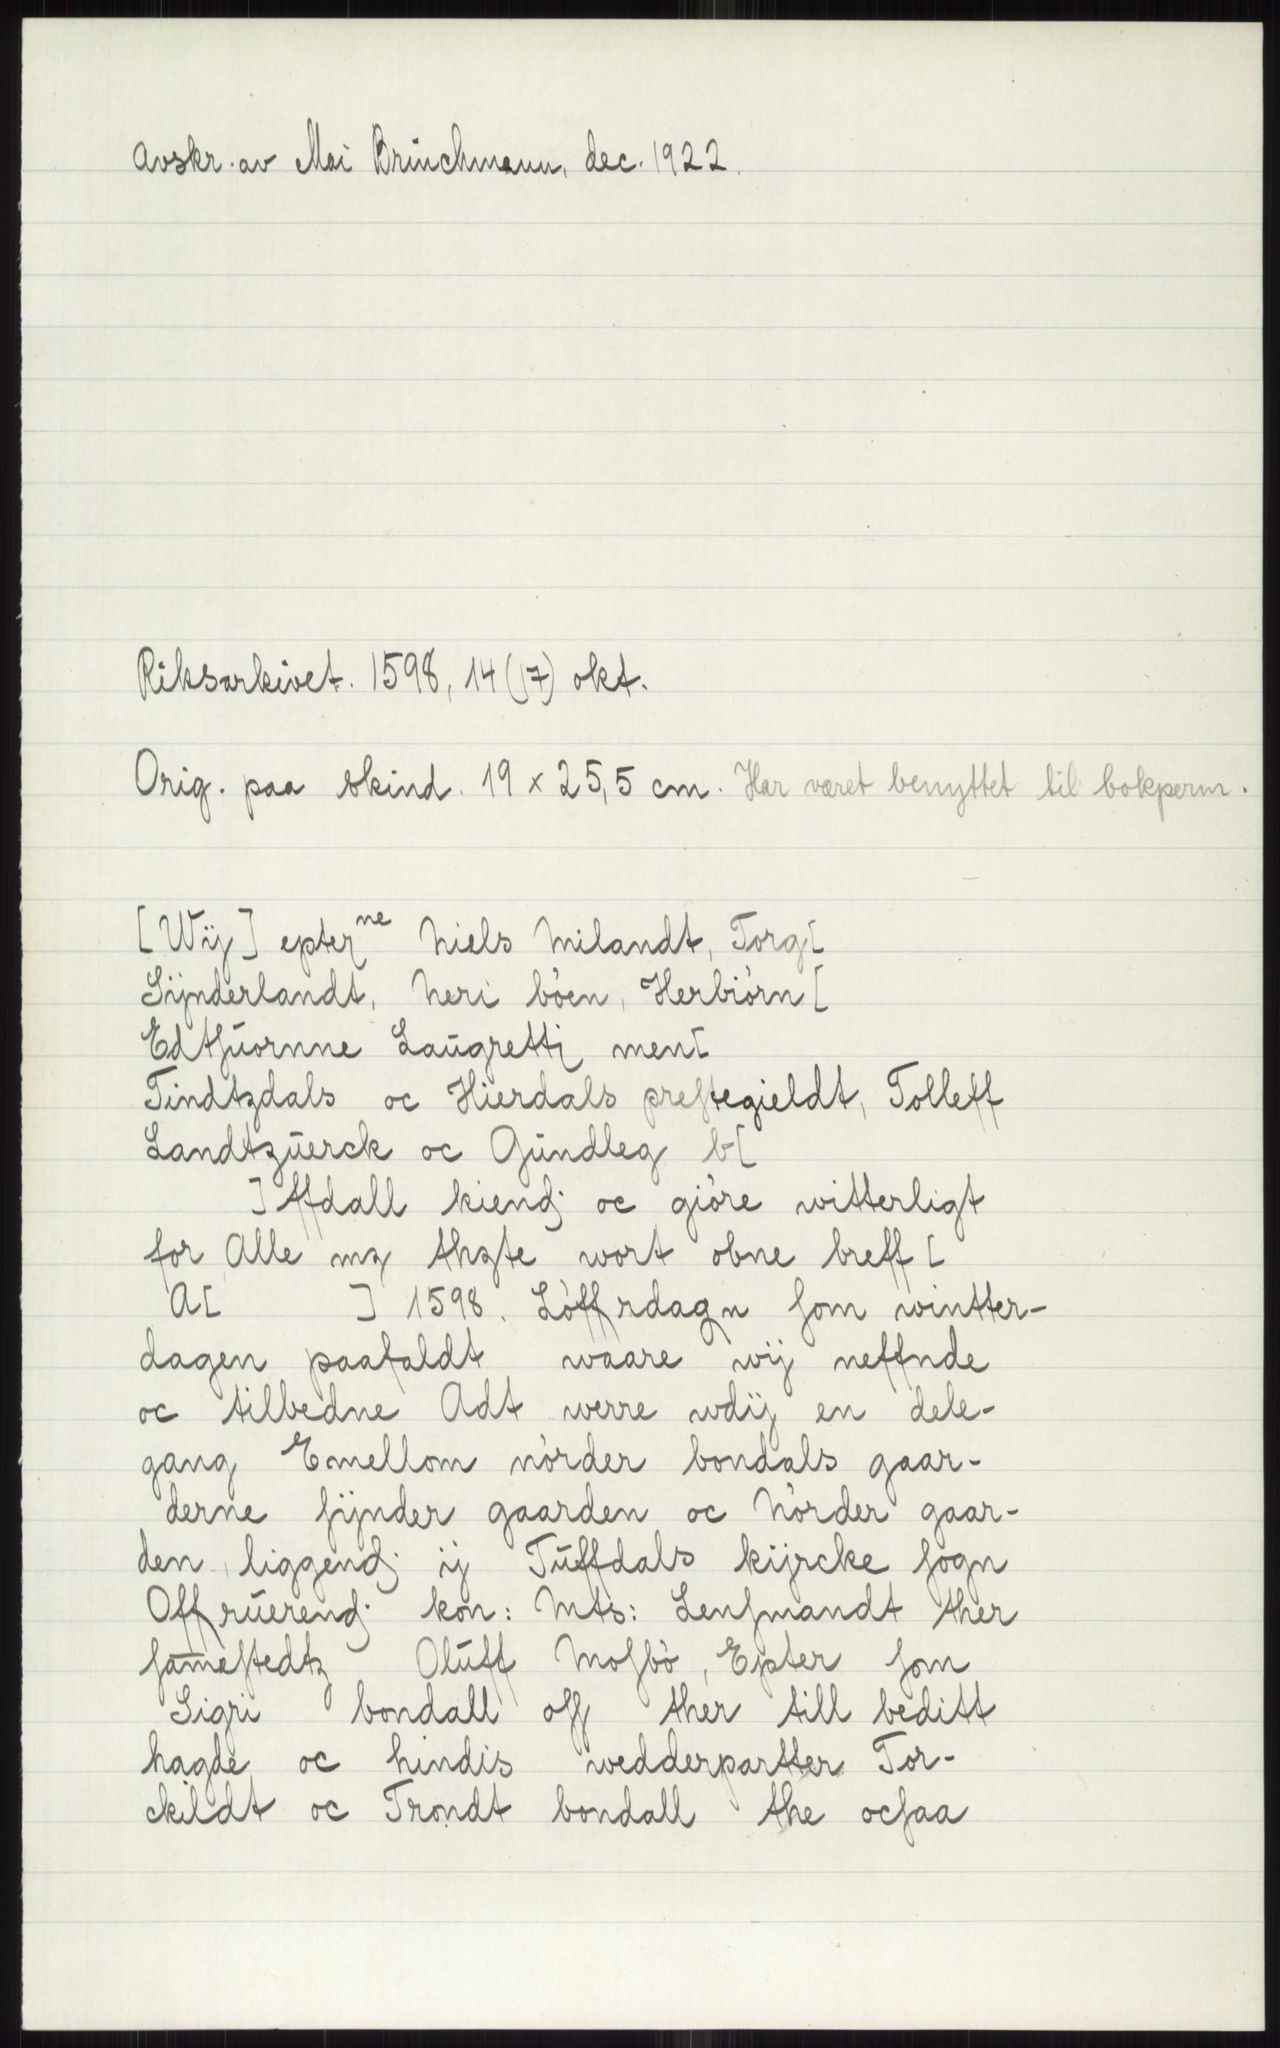 Avskr. av Mai Brinchmann, dec. 1922.
Riksarkivet. 1598, 14 (17) okt.
Orig. paa skind. 19 x 25,5 cm. Har været benyttet til bokperm.
[Wij] epterne Niels Milandt, Torg[
Sijnderlandt, Neri böen, Herbiörn [
Edtſuornne Laugrettz men[
Tindtzdals oc Hierdals preſtegieldt, Tolleff
Landtzuerck oc Gundleg b[
]ffdall kiendj oc giöre witterligt
for Alle mz thzte wort obne breff [
A[ ] 1598. Löffrdagn ſom wintter-
dagen paafaldt waare wij neffnde
oc tilbedne Adt werre wdij en dele-
gang Emellom nörder bondals gaar-
derne ſijnder gaarden oc Nörder gaar-
den liggendj ij Tuffdals kijrcke ſogn
Offruerendj kon: Mts: Lenſmandt ther
ſameſtedtz Oluff Moſbö, Epter ſom
Sigri bondall oſſ ther till beditt
hagde oc hindis wedderpartter Tor-
ckildt oc Trondt bondall the ocſaa